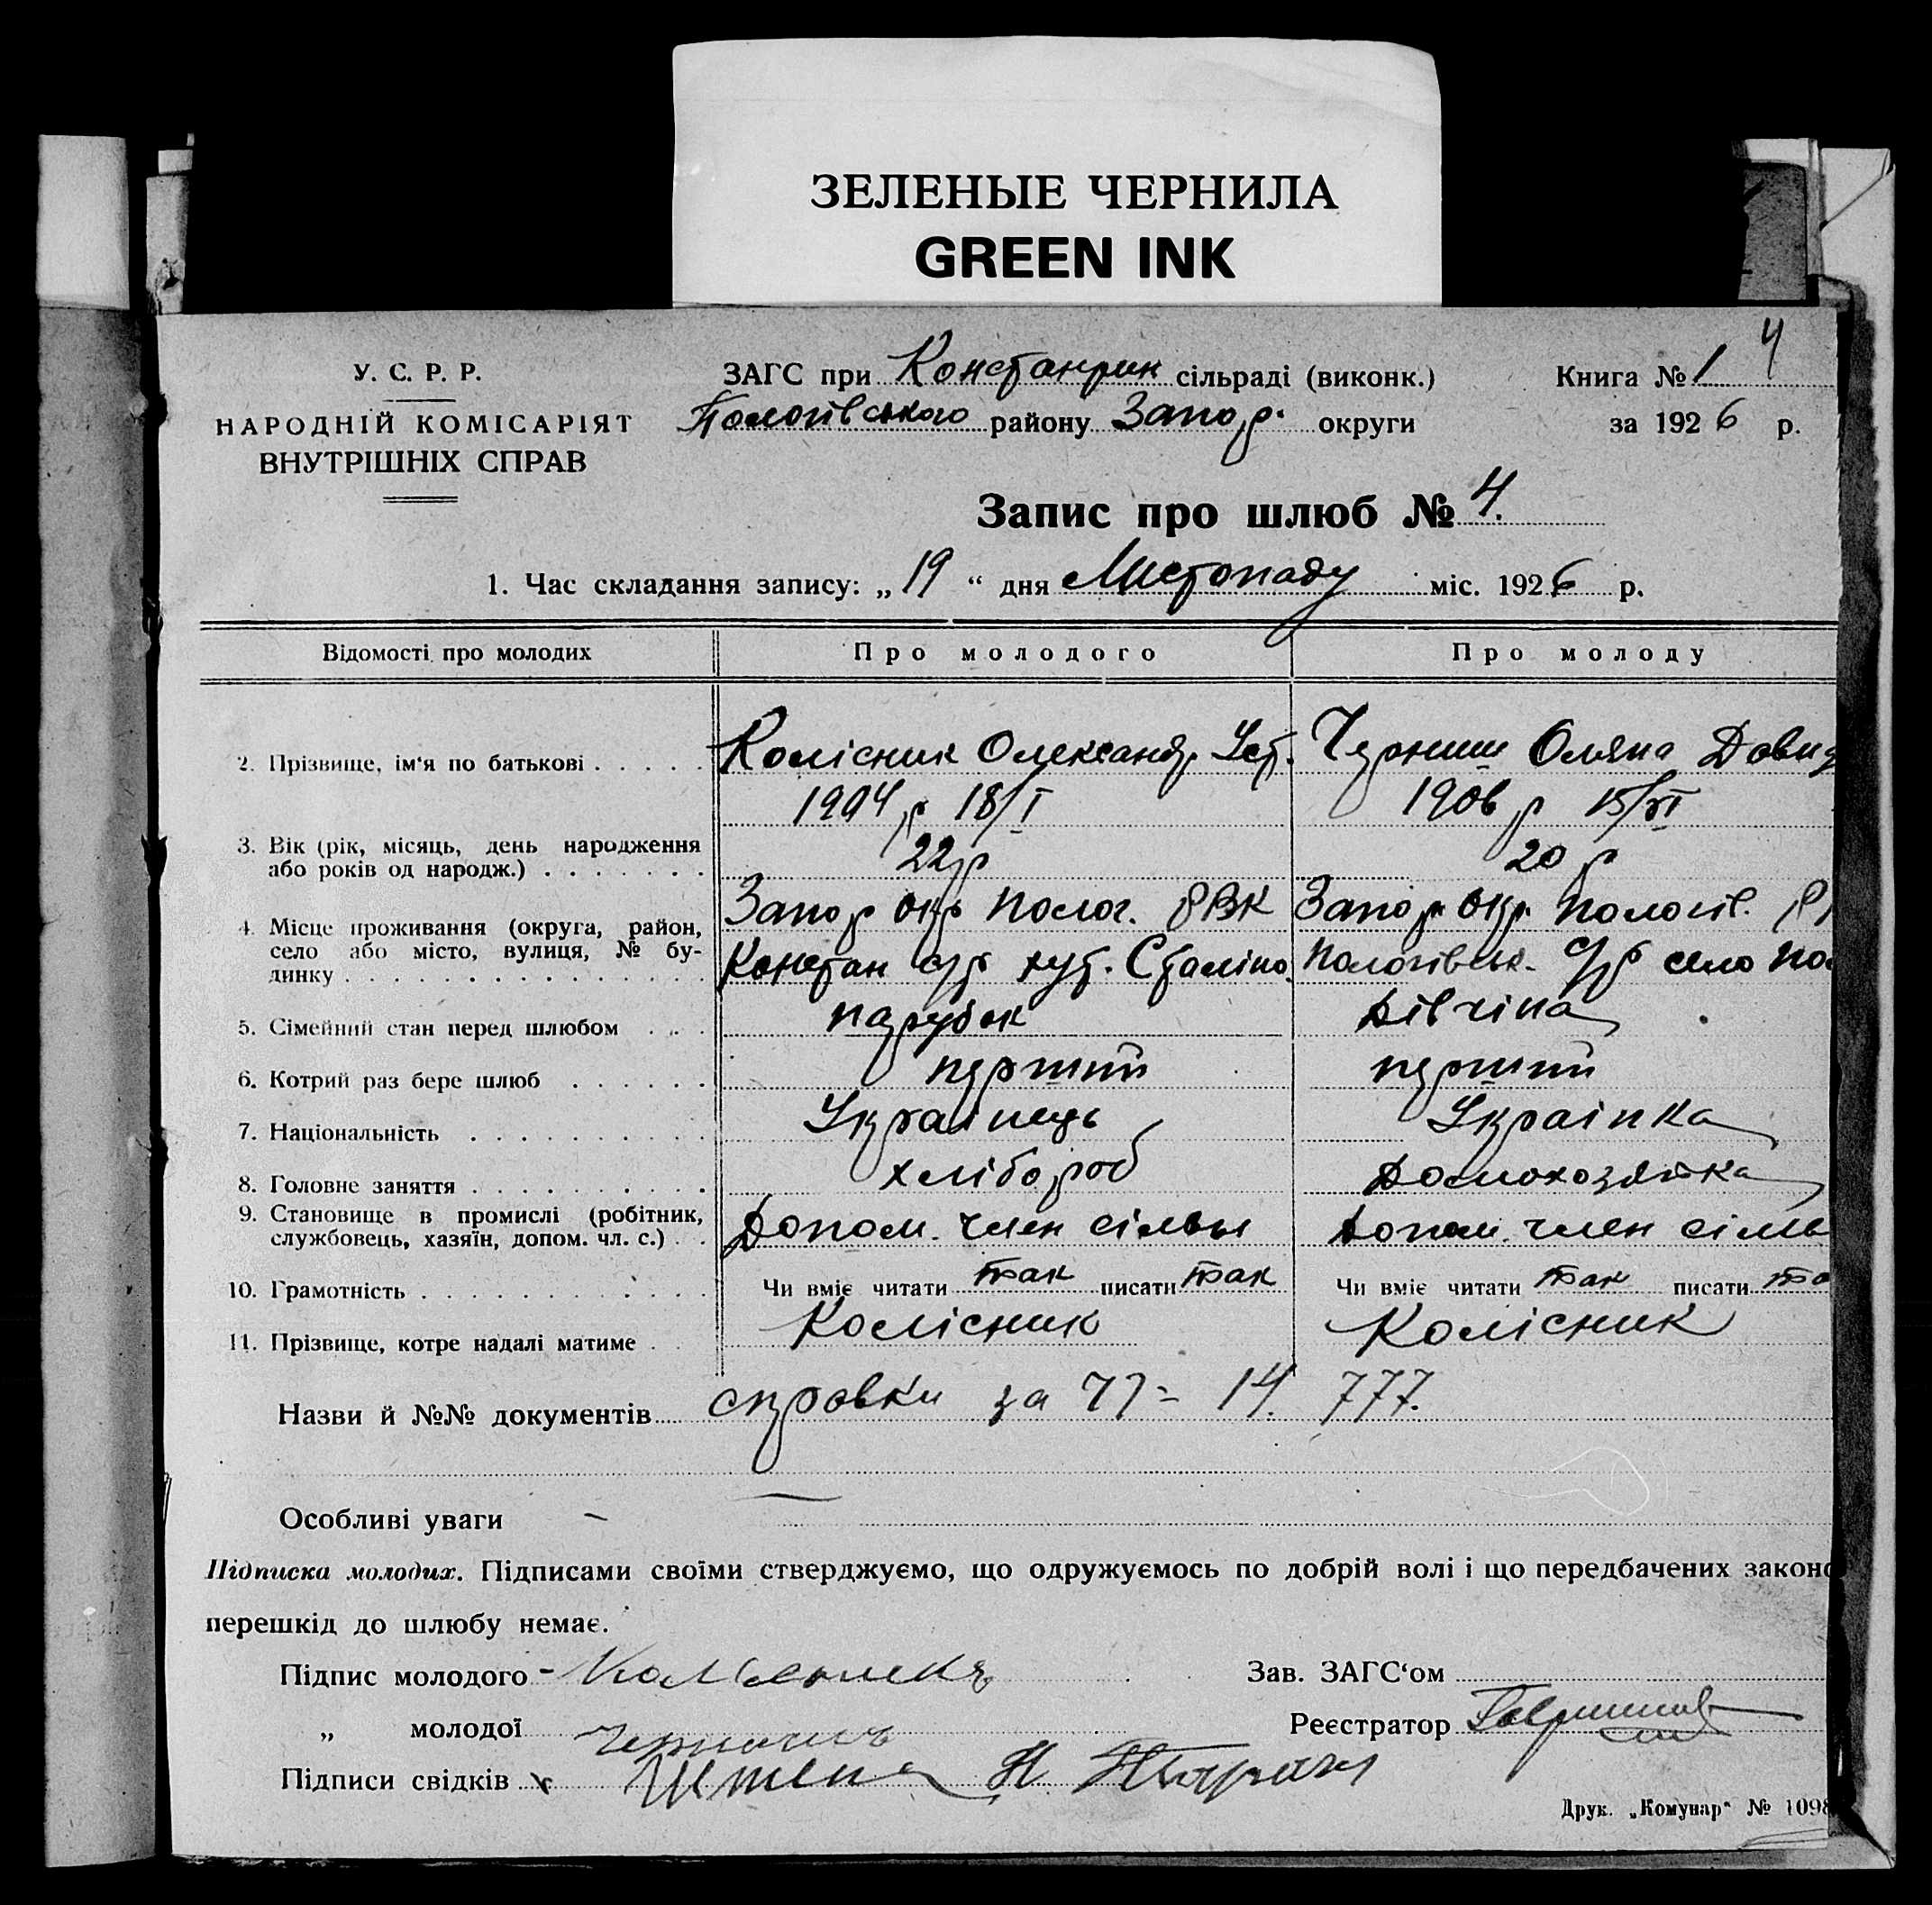 ЗЕЛЕНЫЕ ЧЕРНИЛА
GREEN INK
4
У. С. Р. Р.
НАРОДНІЙ КОМІСАРІЯТ
ВНУТРІШНІХ СПРАВ
ЗАГС при Константин сільраді (виконк.) Книга № 1
Пологівського району Запор. округи за 1926 р.
Запис про шлюб № 4.
1. Час складання запису: „19“ дня Листопаду міс. 1926 р.
Відомості про молодих Про молодого Про молоду
2. Прізвище, ім'я по батькові . . . . . Колісник Олександр Уст. Черниш Оляна Давид
1904 р 18/I 1906 р 15/VI
3. Вік (рік, місяць, день народження
або років од народж.) . . . . . . . 22 р 20 р
4. Місце проживання (округа, район, Запор окр Полог. РВК Запор окр. Пологів. Р
село або місто, вулиця, № бу-
динку . . . . . . . . . . . . . . . Констан с/р хут. Сталіно. Пологівськ. с/р село По
5. Сімейний стан перед шлюбом . . . парубок дівчіна
6. Котрий раз бере шлюб . . . . . . перший перший
7. Національність . . . . . . . . . . Украінець Украінка
8. Головне заняття . . . . . . . . . . хлібороб домохозяйка
9. Становище в промислі (робітник,
службовець, хазяїн, допом. чл. с.) . . Допом. член сімьи допом. член сімь
10. Грамотність . . . . . . . . . . . . Чи вміє читати так писати так Чи вміє читати так писати та
11. Прізвище, котре надалі матиме . . Колісник Колісник
Назви й №№ документів справки за 14. 777.
Особливі уваги –
Підписка молодих. Підписами своїми стверджуємо, що одружуємось по добрій волі і що передбачених законо
перешкід до шлюбу немає.
Підпис молодого - Зав. ЗАГС'ом
„ молодої Реєстратор
Підписи свідків
Друк. „Комунар“ № 1098